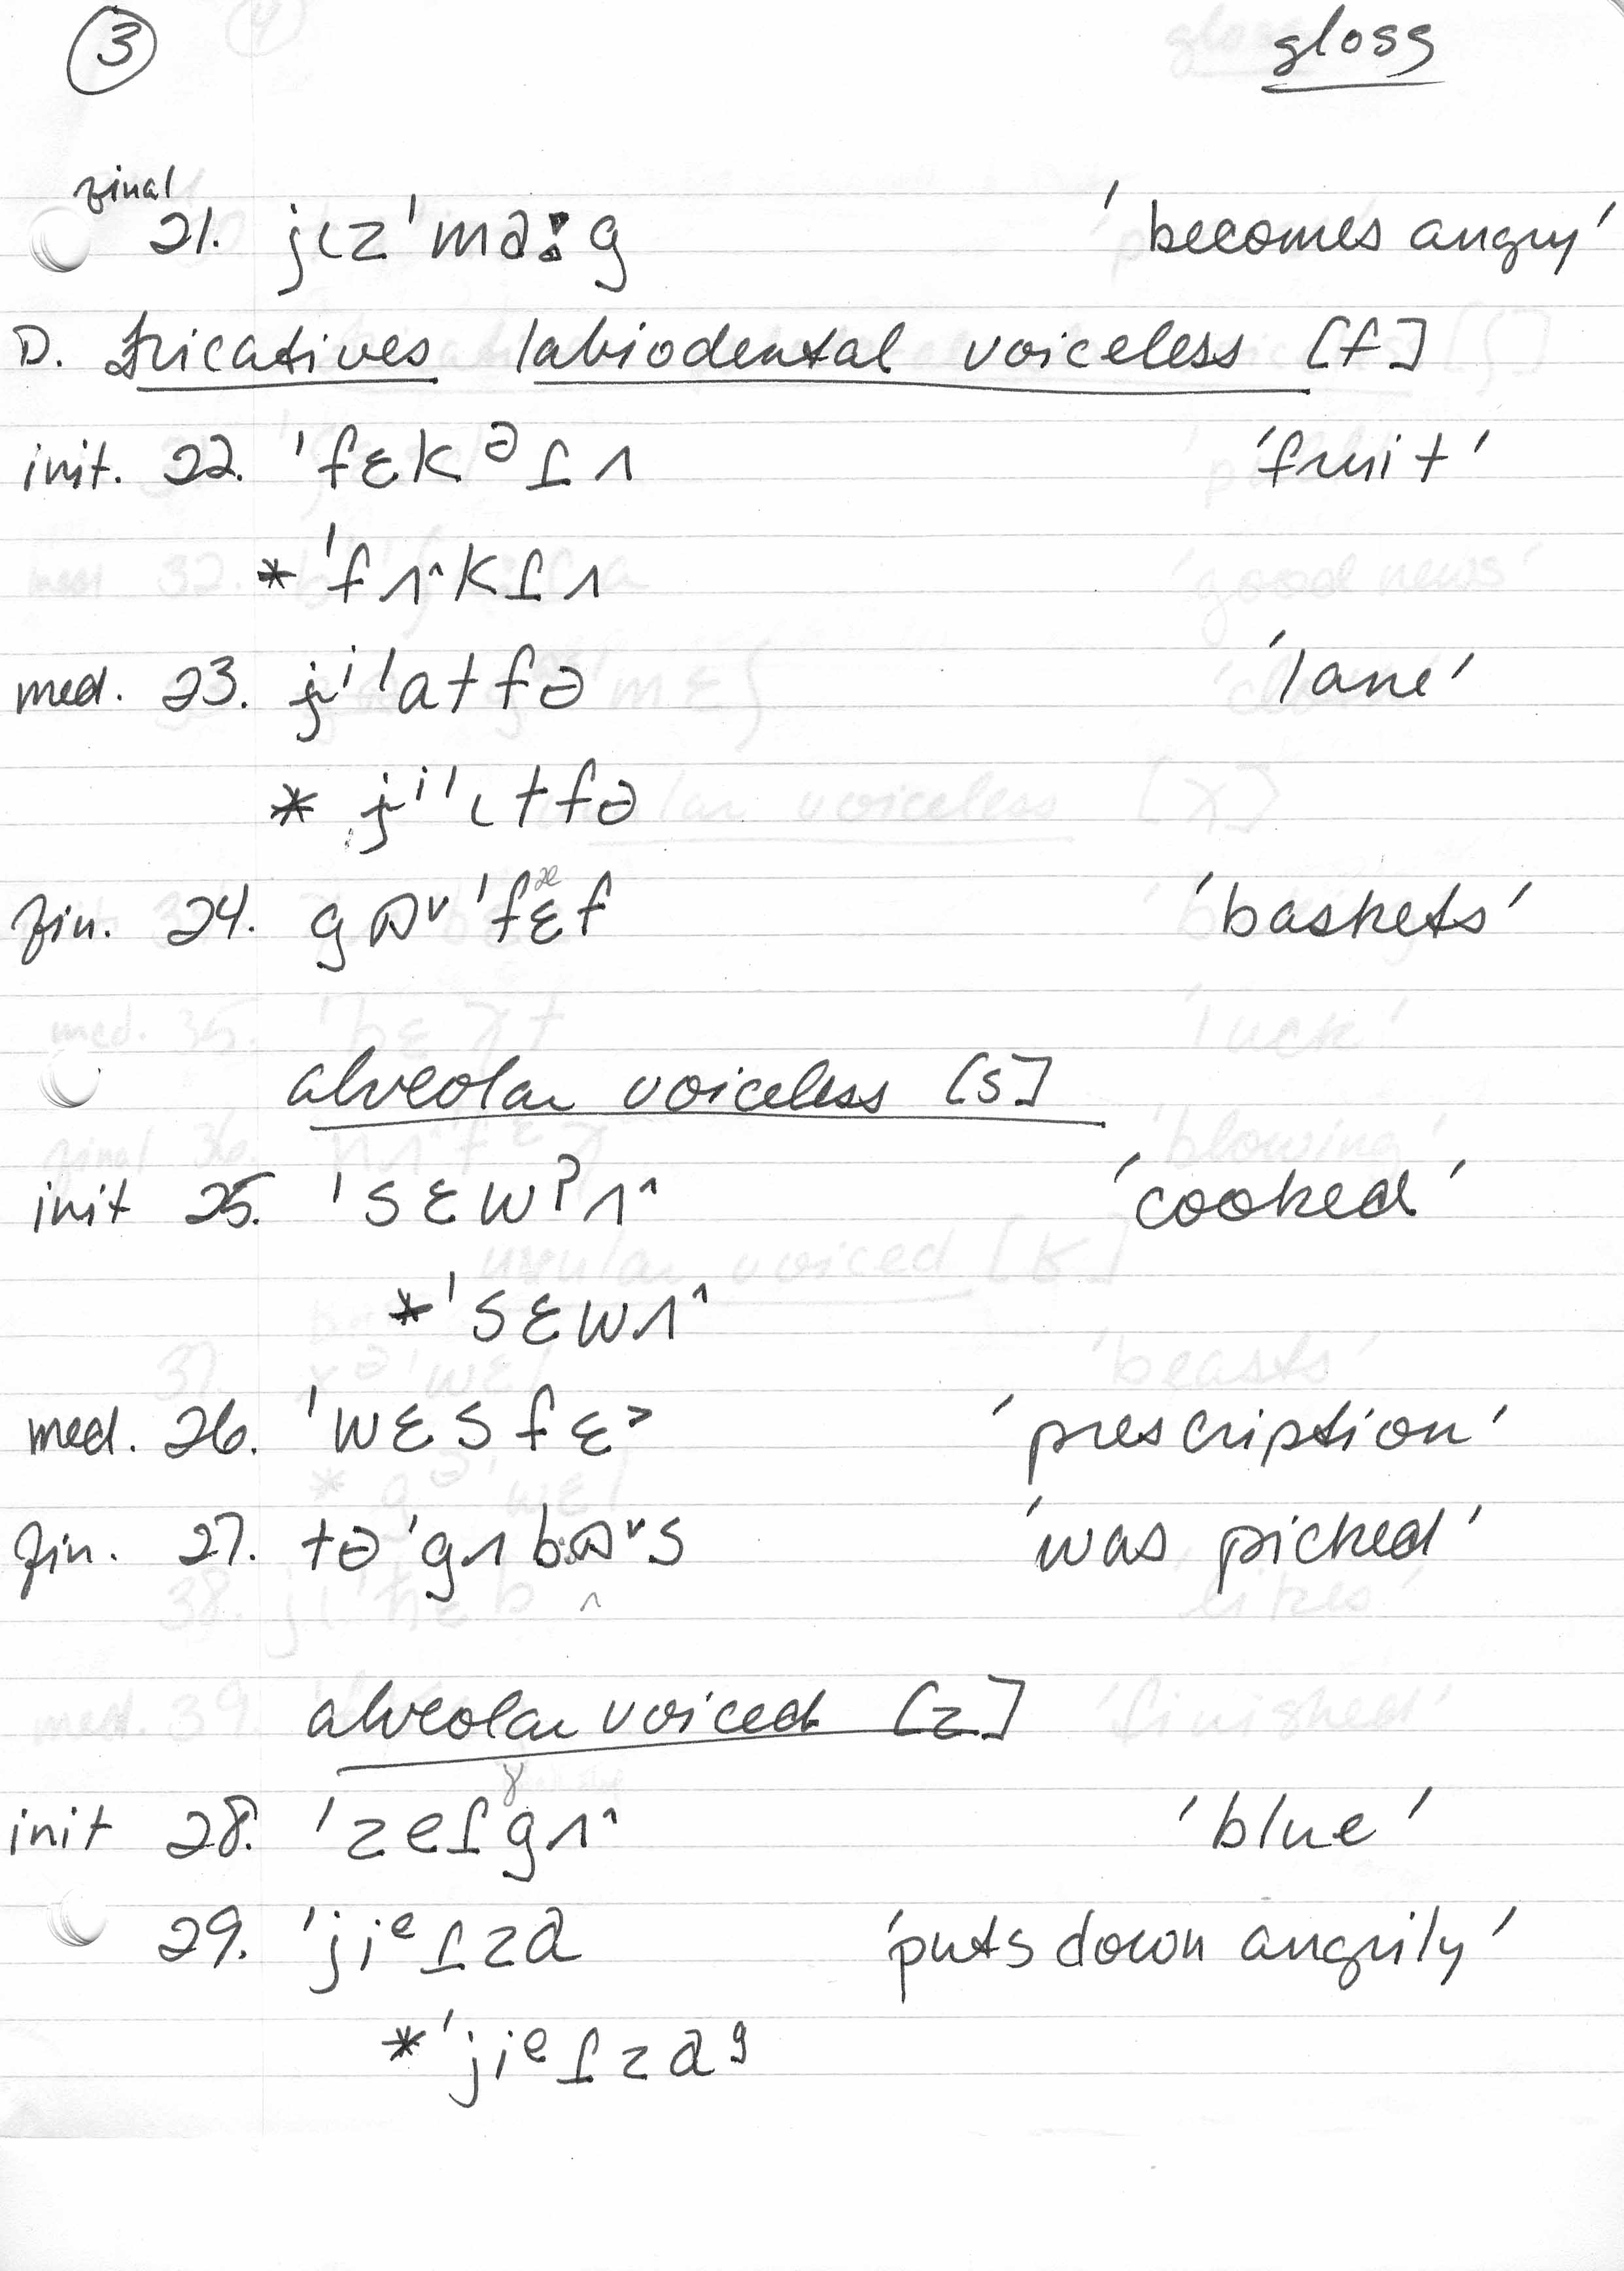 ③ gloss
final
21. jɩzˈmə:g 'becomes angry'
D. fricatives labiodental voiceless [f]
init. 22. ˈfɛkᵊɾʌ 'fruit'
* ˈfʌ^kɾʌ
med. 23. jⁱˈatfə 'lane'
* jⁱˈɩtfə
fin. 24. gɒᵛˈfɛf 'baskets'
æ
alveolar voiceless [s]
init 25. ˈsɛwʔʌ^ 'cooked'
*ˈsɛwʌ^
med. 26. ˈwɛsfɛ˃ 'prescription'
fin. 27. təˈgʌbɒᵛs 'was picked'
^
alveolar voiced [z]
ɣ
init 28. ˈzeɾgʌ^ 'blue'
29. ˈjiᵉɾzə 'puts down angrily'
*ˈjiᵉɾzəᵍ